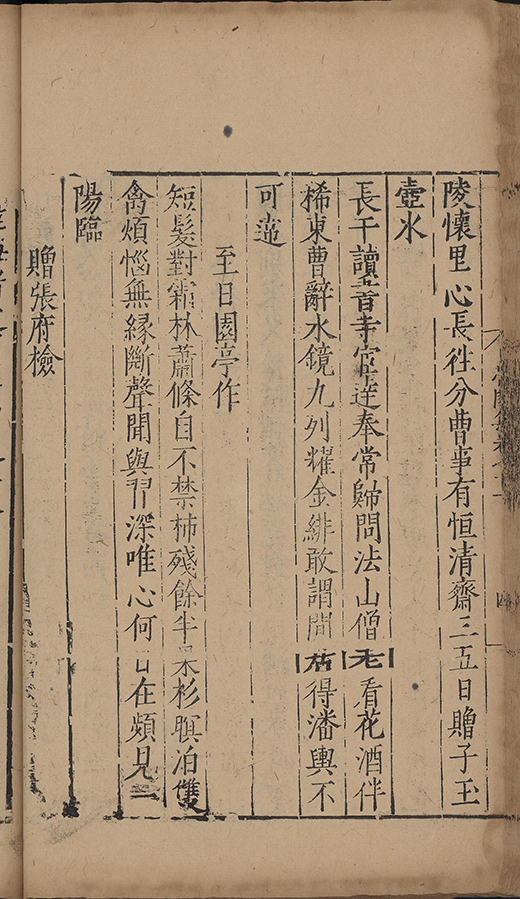 陵懷里心長往分曹事有恒清齋三五日贈子玉
壺水
長干讀書寺宦達奉常歸問法山僧老看花酒伴
稀東曹辭水鏡九列耀金緋敢謂閒居得潘輿不
可違
至日園亭作
短髮對霜林蕭條自不禁柿殘餘半果杉暝泊雙
禽煩惱無緣斷聲聞與習深唯心何日在頻見一
陽臨
贈張府檢